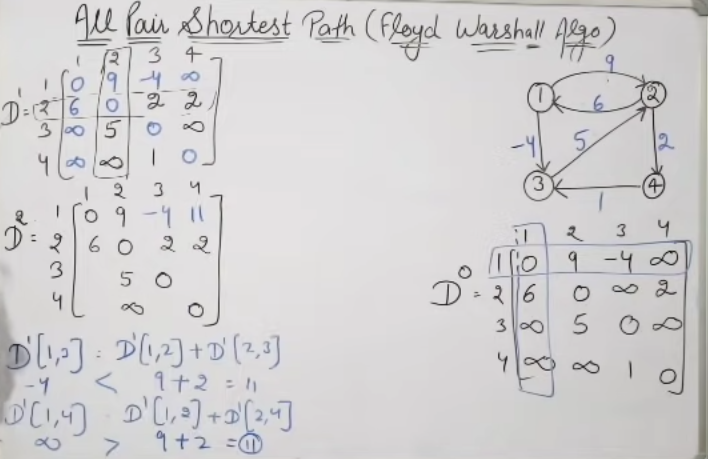 All Pair Shortest Path (Floyd Warshall Algo)
1 2 3 4
D¹= 1 0 9 -4 ∞
2 6 0 2 2
3 ∞ 5 0 ∞
4 ∞ ∞ 1 0
1 2 3 4
D²= 1 0 9 -4 11
2 6 0 2 2
3 5 0
4 ∞ 0
D¹[1,3] : D¹[1,2]+D¹[2,3]
-4 < 9+2 = 11
D¹[1,4] D¹[1,2]+D¹[2,4]
∞ > 9+2 = 11
9
1 6 2
-4 5 2
3 1 4
1 2 3 4
D⁰= 1 0 9 -4 ∞
2 6 0 ∞ 2
3 ∞ 5 0 ∞
4 ∞ ∞ 1 0